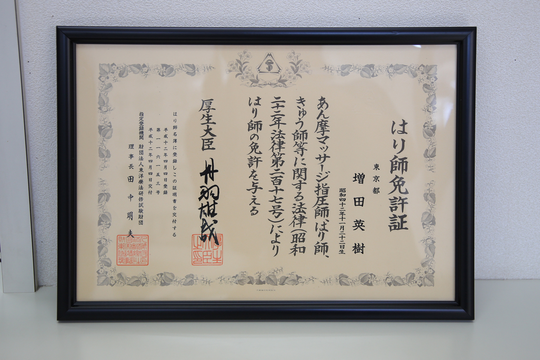 はり師免許証
東京都
増田英樹
昭和四十三年十一月二十二日生
あん摩マツサージ指圧師、はり師、
きゆう師等に関する法律(昭和
二十二年法律第二百十七号)により
はり師の免許を与える
厚生大臣 丹羽雄哉
はり師名簿に登録しこの証明書を交付する
平成十二年四月四日登録
平成十二年四月四日交付
指定登録機関 財団法人東洋療法研修試験財団
理事長 田中明夫